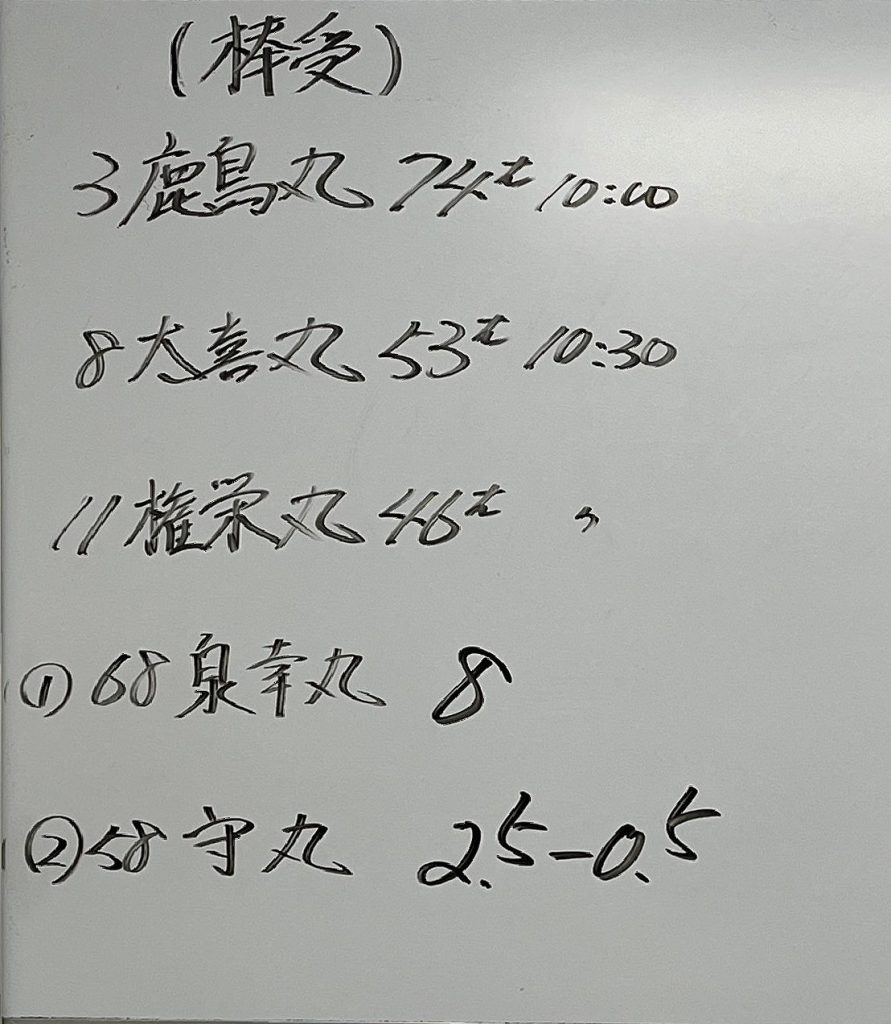 (棒受)
3鹿島丸 74t 10:00
8大喜丸 53t 10:30
11権栄丸 46t 〃
①68泉幸丸 8
②58守丸 2.5-0.5